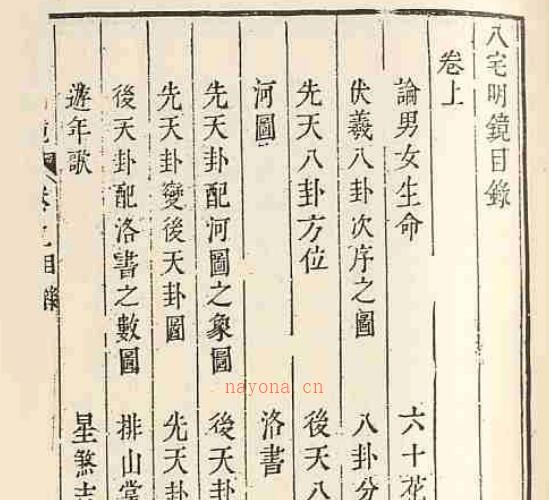 八宅明鏡目錄
卷上
論男女生命 六十花
伏羲八卦次序之圖 八卦分
先天八卦方位 後天八
河圖 洛書
先天卦配河圖之象圖 後天卦
先天卦變後天卦圖 先天卦
後天卦配洛書之數圖 排山掌
遊年歌 星煞吉
目錄
nayona.cn